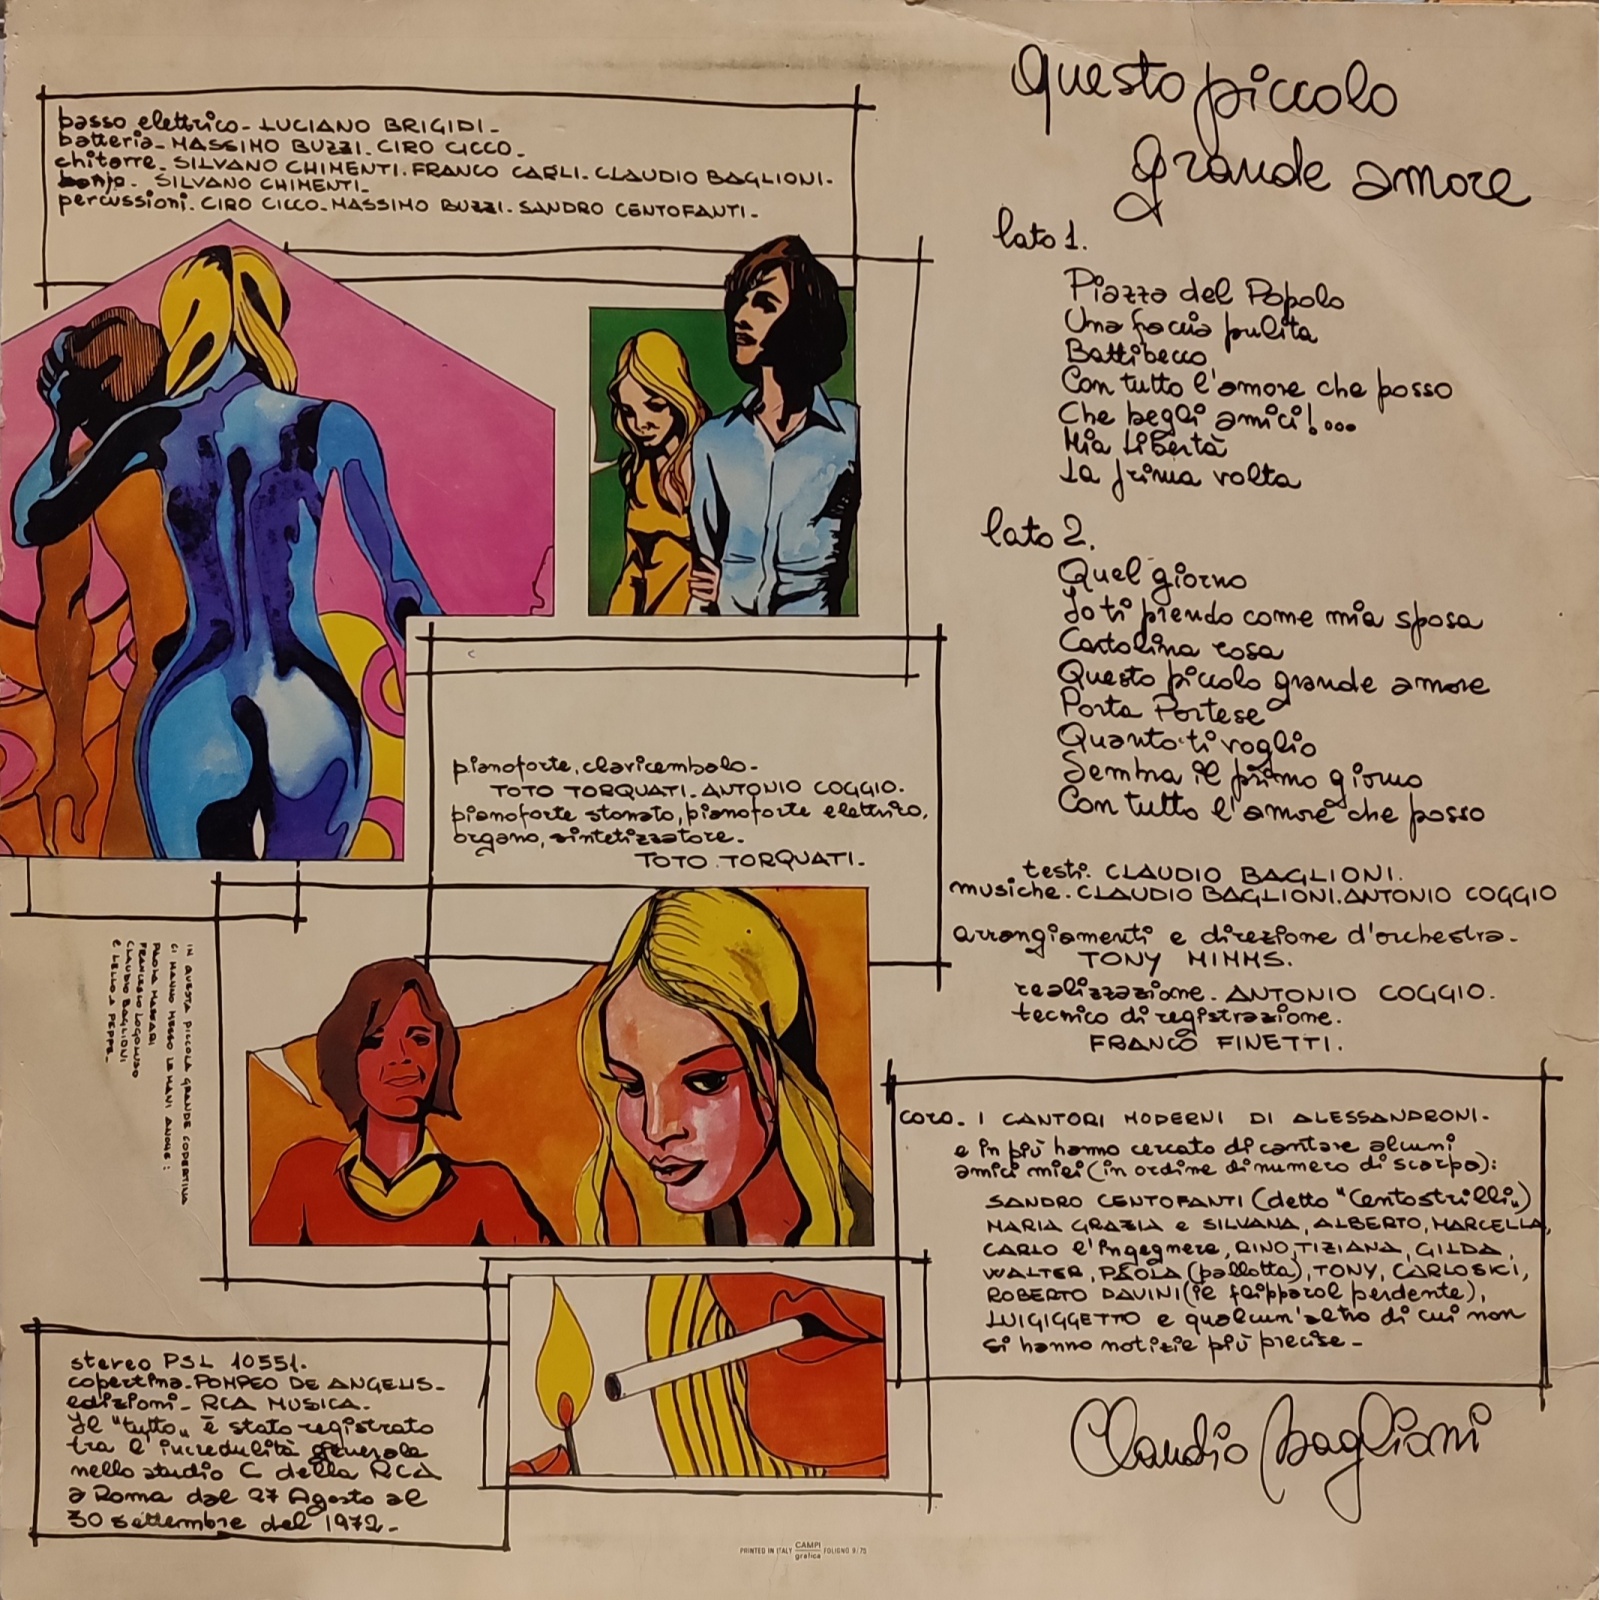 basso elettrico_ LUCIANO BRIGIDI_
batteria_ MASSIMO BUZZI. CIRO CICCO_
chitarre_ SILVANO CHIMENTI. FRANCO CARLI. CLAUDIO BAGLIONI.
banjo. SILVANO CHIMENTI_
percussioni. CIRO CICCO. MASSIMO BUZZI. SANDRO CENTOFANTI.
pianoforte, clavicembalo-
TOTO TORQUATI. ANTONIO COGGIO.
pianoforte stonato, pianoforte elettrico,
organo, sintetizzatore.
TOTO TORQUATI.
IN QUESTA PICCOLA GRANDE COPERTINA
CI HANNO MESSO LE MANI ANCHE:
PAOLA MASSARI
FRANCESCO LOGOLUSO
CLAUDIO BAGLIONI
E LELLO, A PEPPE_
stereo PSL 10551.
copertina. POMPEO DE ANGELIS_
edizioni_ RCA MUSICA.
Il "tutto" è stato registrato
tra l'incredulità generale
nello studio C della RCA
a Roma dal 27 Agosto al
30 settembre del 1972_
Questo piccolo
grande amore
lato 1.
Piazza del Popolo
Una faccia pulita
Battibecco
Con tutto l'amore che posso
Che begli amici!...
Mia Libertà
La prima volta
lato 2.
Quel giorno
Io ti prendo come mia sposa
Cartolina rosa
Questo piccolo grande amore
Porta Portese
Quanto ti voglio
Sembra il primo giorno
Con tutto l'amore che posso
testi. CLAUDIO BAGLIONI.
musiche. CLAUDIO BAGLIONI. ANTONIO COGGIO
arrangiamenti e direzione d'orchestra-
TONY MIMMS.
realizzazione. ANTONIO COGGIO.
tecnico di registrazione.
FRANCO FINETTI.
coro. I CANTORI MODERNI DI ALESSANDRONI-
e in più hanno cercato di cantare alcuni
amici miei (in ordine di numero di scarpa):
SANDRO CENTOFANTI (detto "Centostrilli")
MARIA GRAZIA e SILVANA, ALBERTO, MARCELLA,
CARLO l'ingegnere, RINO, TIZIANA, GILDA,
WALTER, PAOLA (pallotta), TONY, CARLOSKI,
ROBERTO DAVINI (il flipparol perdente),
LUIGIGGETTO e qualcun'altro di cui non
si hanno notizie più precise-
Claudio Baglioni
PRINTED IN ITALY CAMPI grafica FOLIGNO 9/75